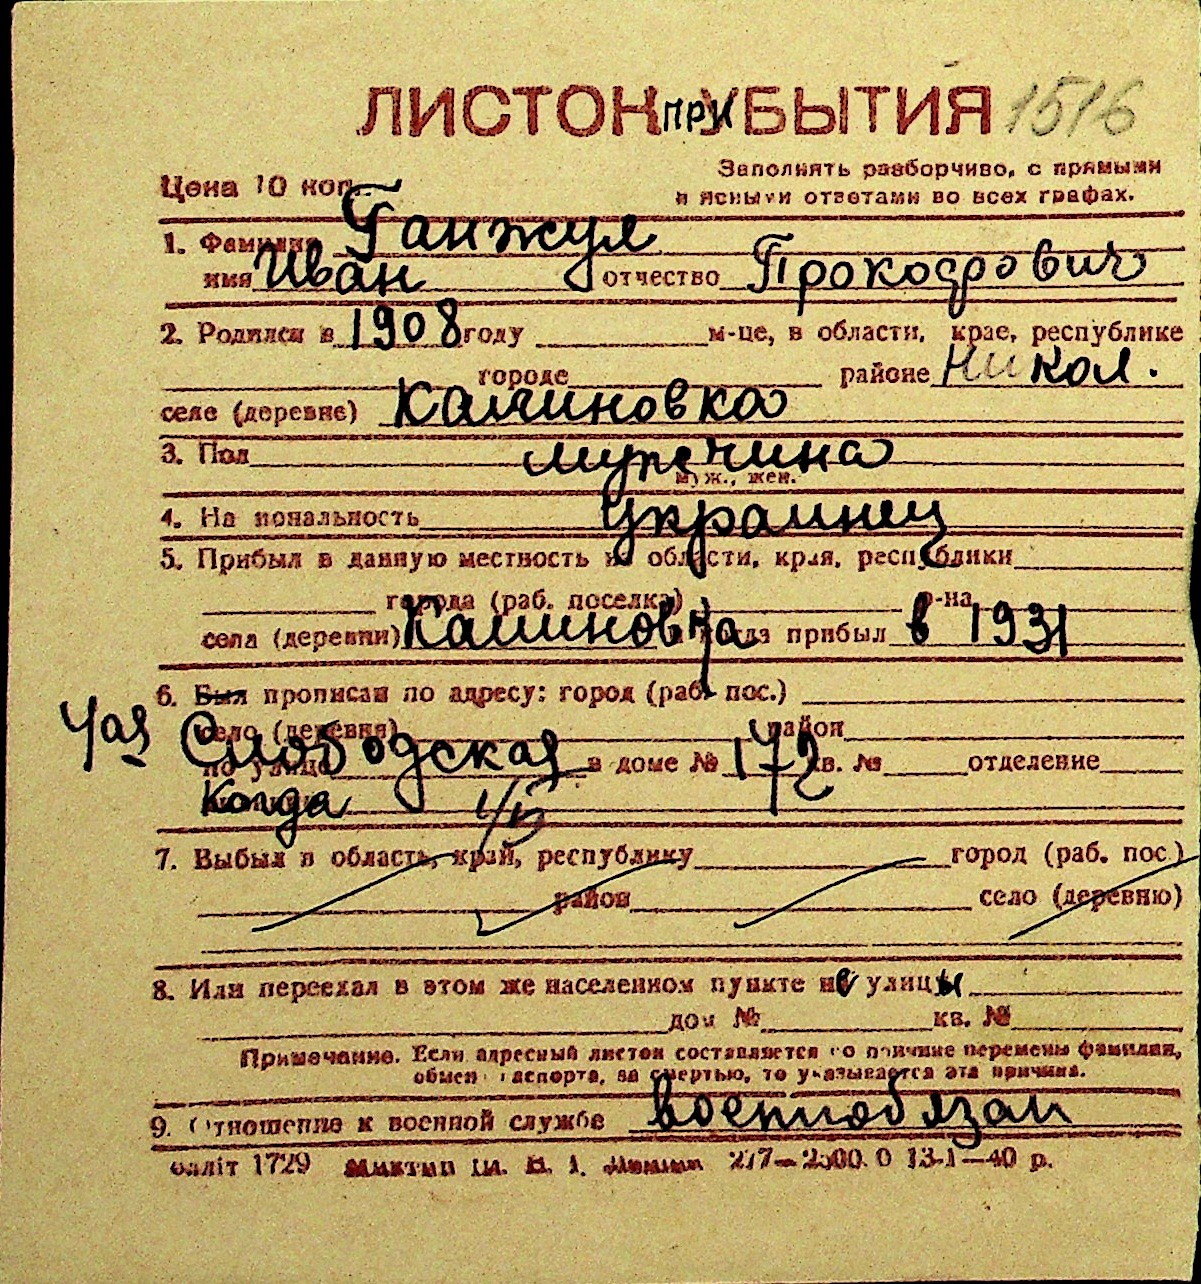 ЛИСТОК ПРИБЫТИЯ 1516
Цена 10 коп.
Заполнять разборчиво, с прямыми
и ясными ответами во всех графах.
1. Фамилия Ганжул
имя Иван отчество Прокофович
2. Родился в 1908 году м-це, в области, крае, республике
городе районе Никол.
селе (деревне) Калиновка
3. Пол мужчина
муж., жен.
4. Национальность украинец
5. Прибыл в данную местность из области, края, республики
города (раб. поселка) р-на
села (деревни) Калиновка и когда прибыл в 1931
6. Был прописан по адресу: город (раб. пос.)
село (деревня) район
4ая Слободская
по улице в доме № 172 кв. № отделение
Когда
7. Выбыл в область, край, республику город (раб. пос.)
район село (деревню)
8. Или переехал в этом же населенном пункте улицы
дом № кв. №
Примечание. Если адресный листок составляется по причине перемены фамилии,
обмен паспорта, за смертью, то указывается эта причина.
9. Отношение к военной службе военнообязан
1729 13-I—40 р.